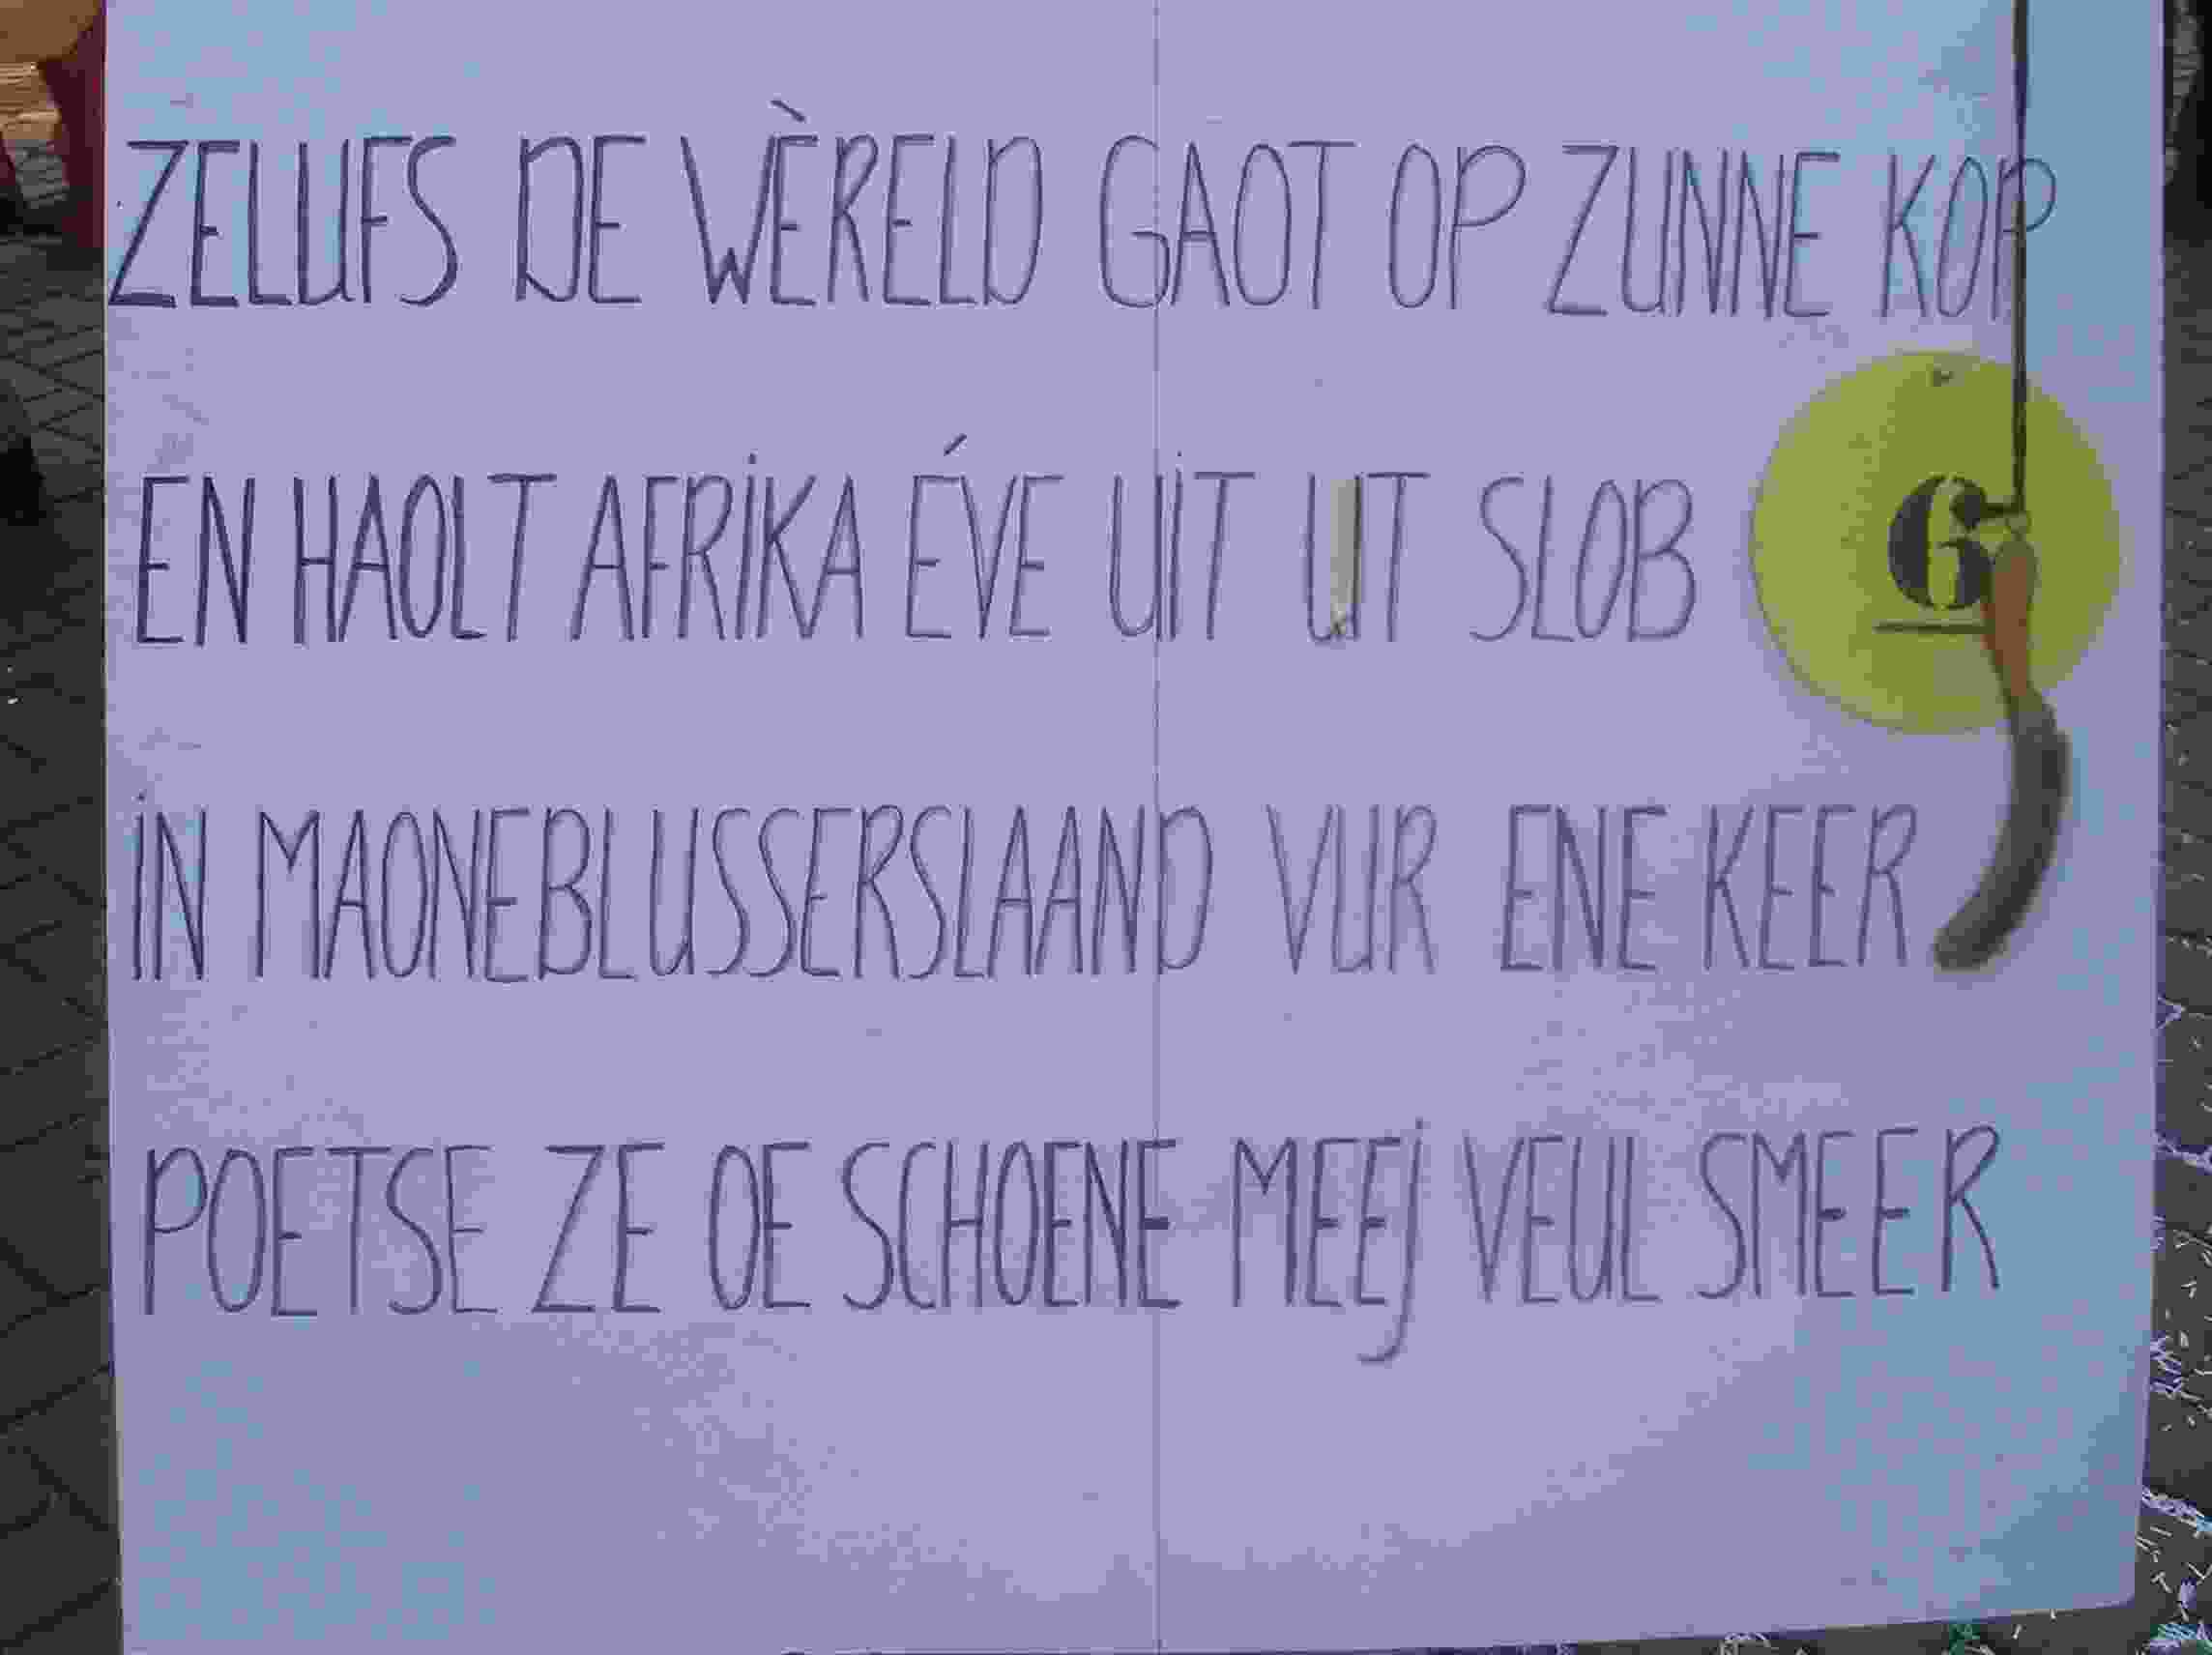 ZELUFS DE WÈRELD GAOT OP ZUNNE KOP
EN HAOLT AFRiKA ÉVE UiT UT SLOB
6
iN MAONEBLUSSERSLAAND VUR ENE KEER
POETSE ZE OE SCHOENE MEEj VEUL SMEER